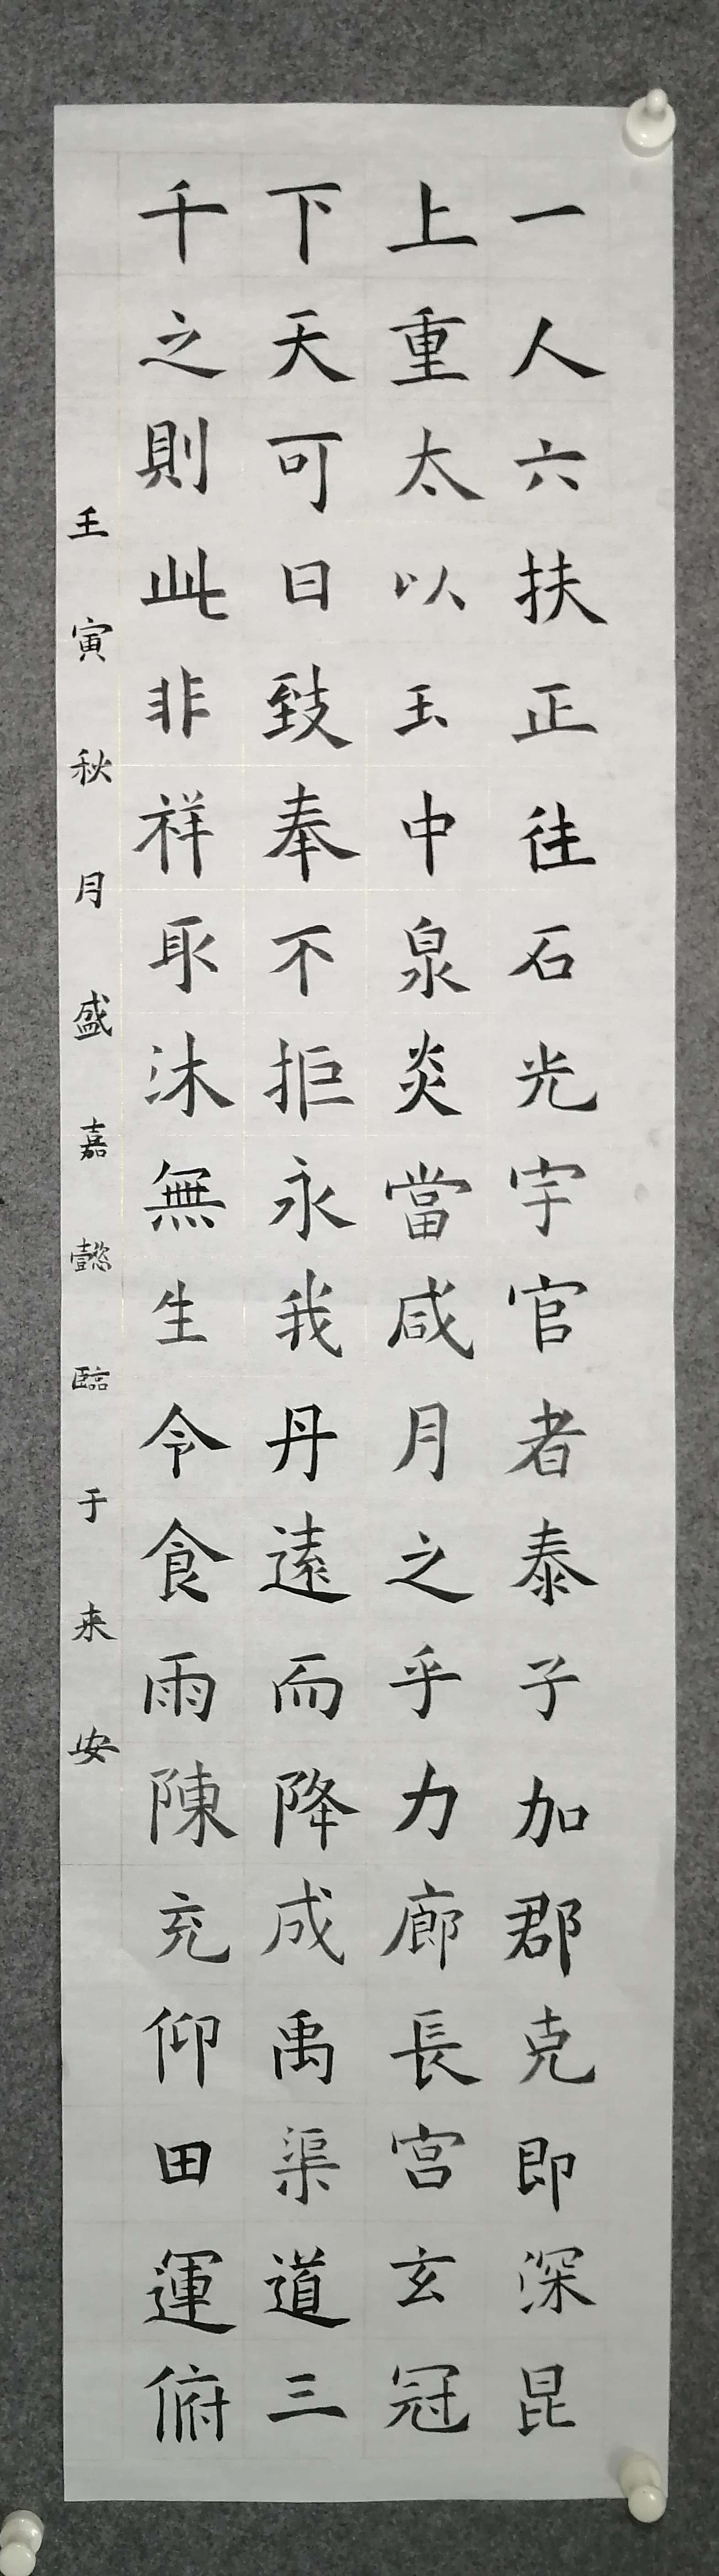 一人六扶正往石光宇官者泰子加郡克即深昆
上重太以玉中泉炎當咸月之乎力廊長宫玄冠
下天可日致奉不拒永我丹遠而降成禹渠道三
千之則此非祥取沐無生令食雨陳充仰田運俯
壬寅秋月盛嘉懿臨于来安